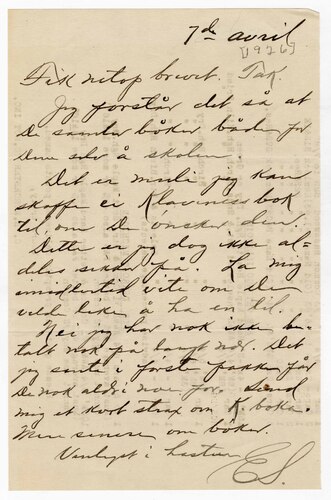 7de avril
[1926]
Fik netop brevet. Tak.
Jeg forstår det så at
De samler bøker både for
Dem selv å skolen.
Det er muli jeg kan
skaffe ei Klaveness bok
til, om De ønsker den.
Dette er jeg dog ikke al-
deles sikker på. La mig
imidlertid vite om De
vild like å ha en til.
Nei jeg har nok ikke be-
talt nok på langt nær. Det
jeg sente i første pakke får
De nok aldri noe for. Send
mig et kort strax om K. boka.
Mere senere om bøker.
Vanligst i hastværk
ES.